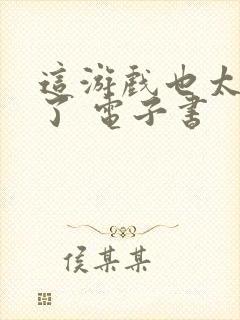 這游戲也太
了 電子書
侯某某